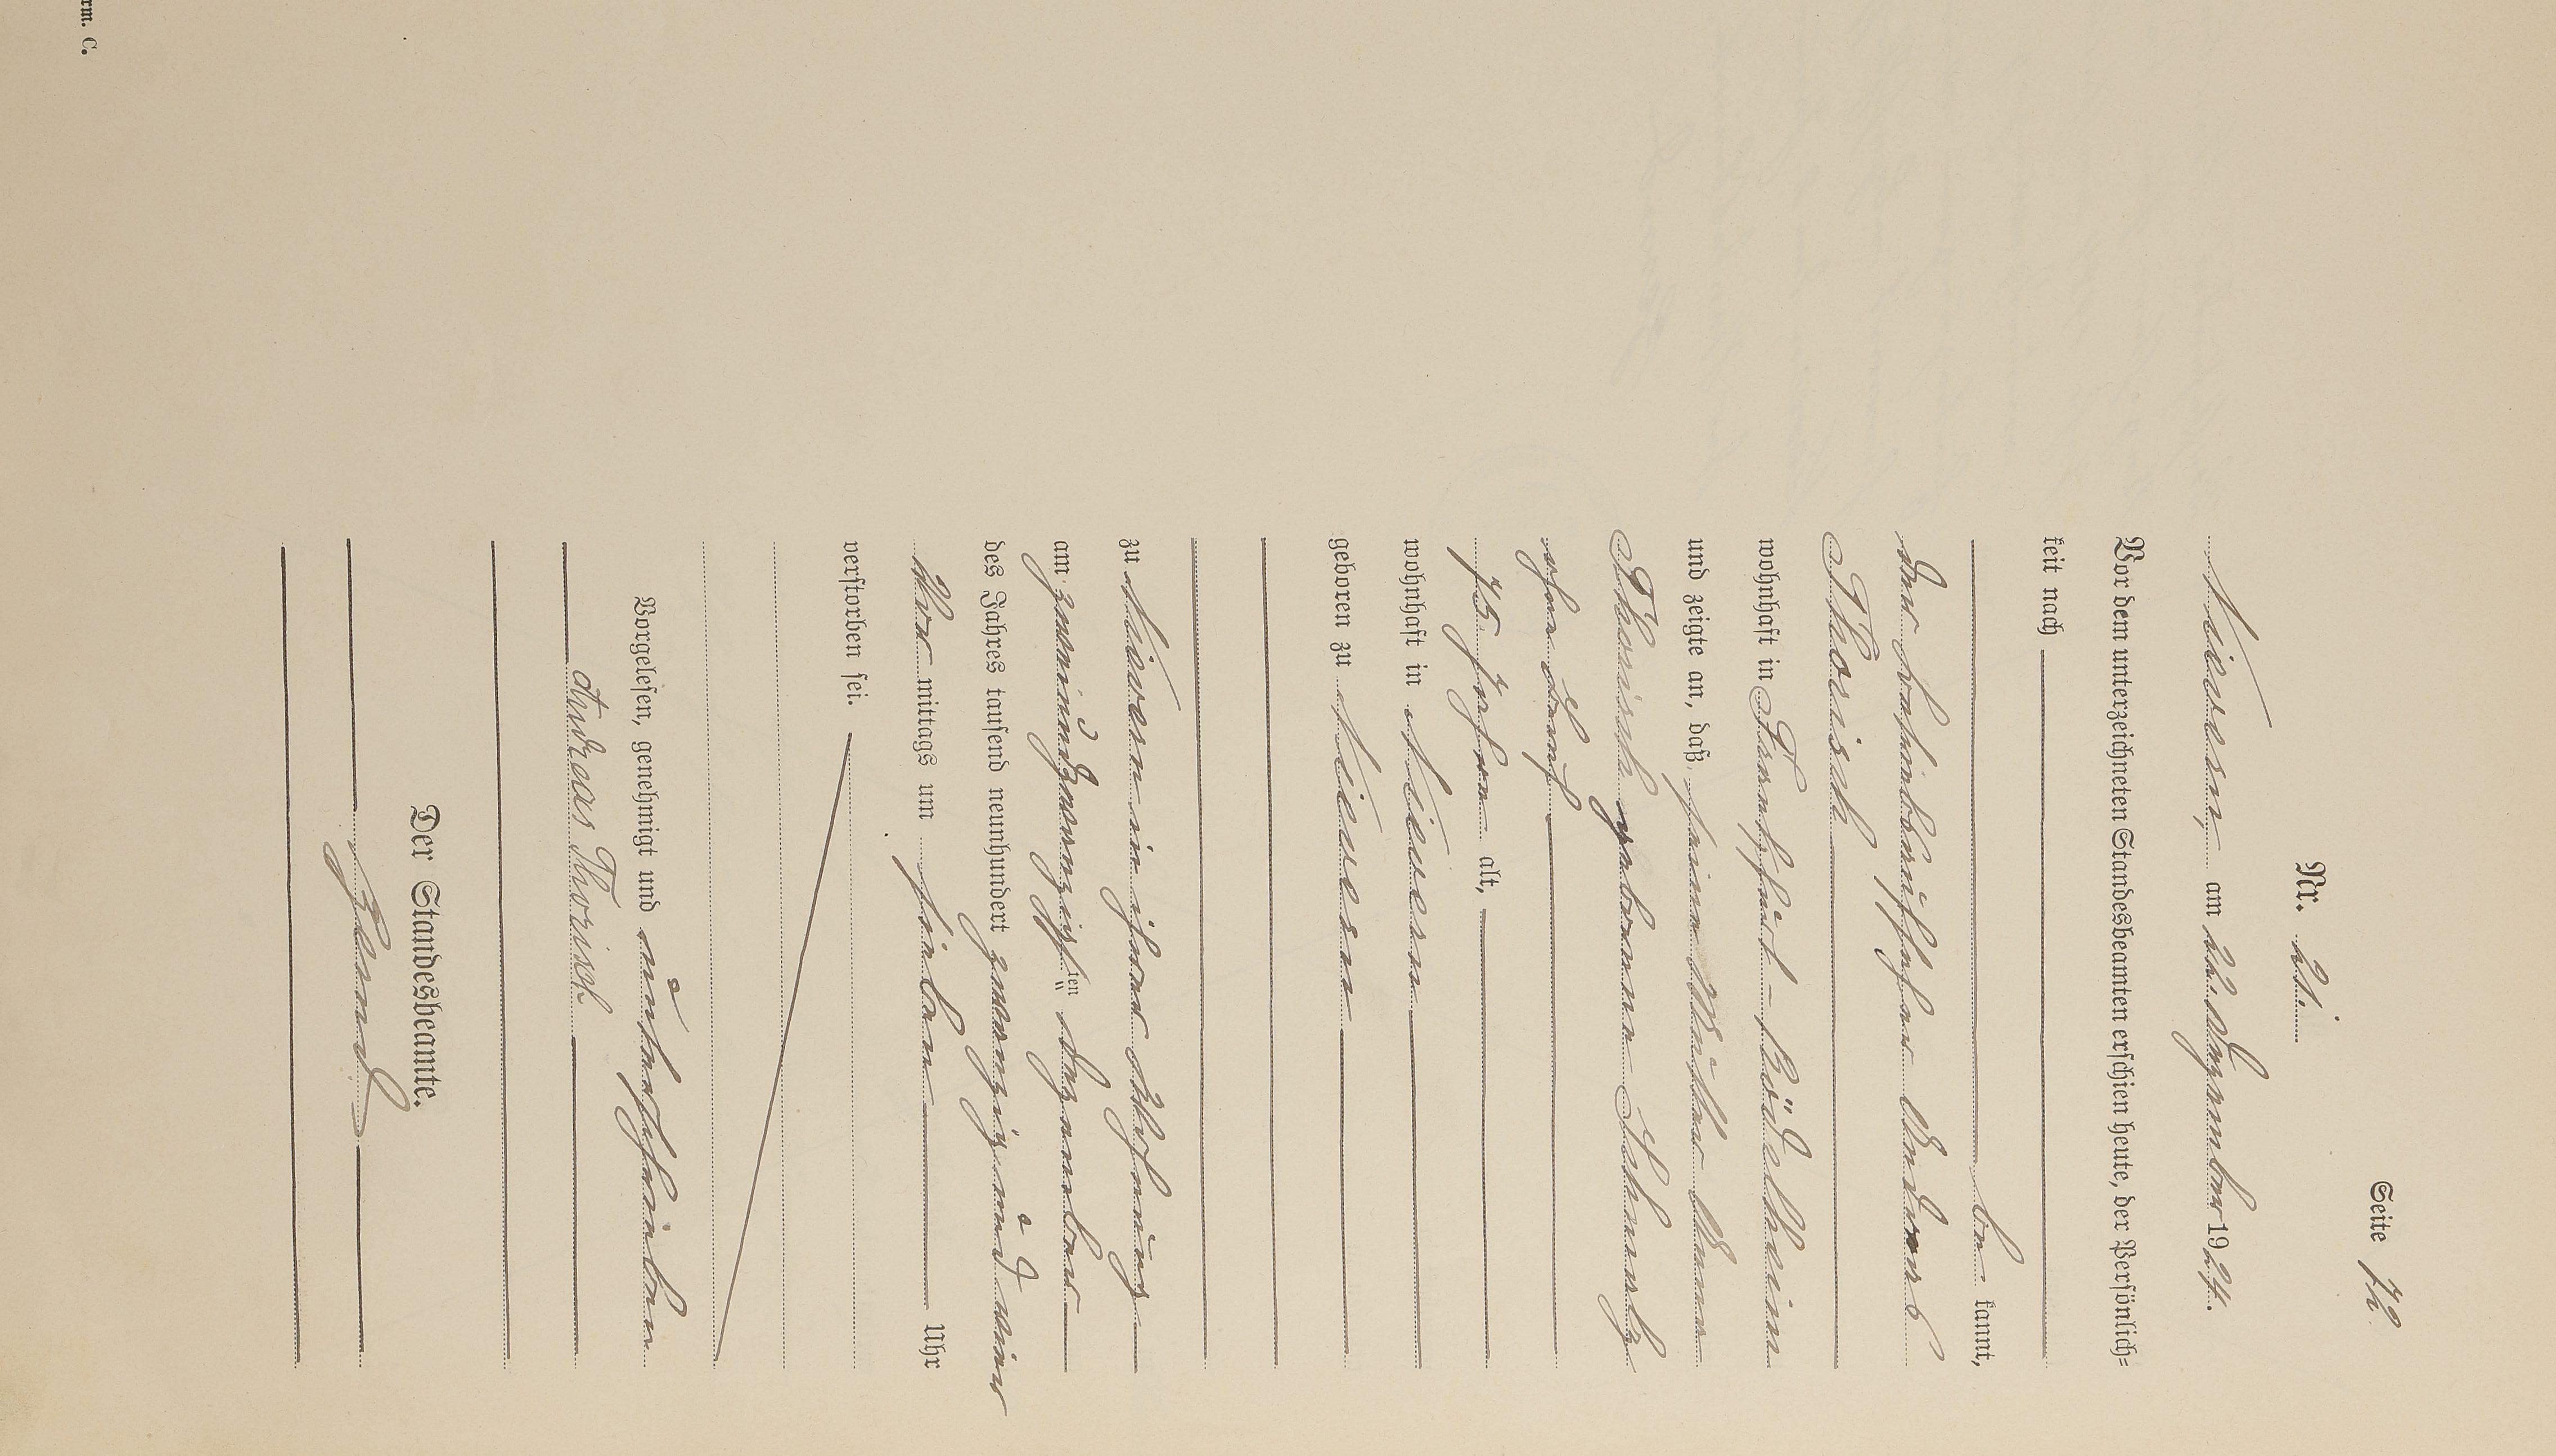 Seite 72.
Nr. 21.
Nievern, am 22. Dezember 1924.
Vor dem unterzeichneten Standesbeamten erschien heute, der Persönlich-
keit nach
be kannt,
der Fabrikbesitzer Andreas
Thorisch
wohnhaft in
und zeigte an, daß seine Mutter Anna
Thorisch geborene
ohne Beruf
75 Jahre alt,
wohnhaft in Nievern
geboren zu Nievern
zu Nievern in ihrer Wohnung
am zweiundzwanzigsten Dezember
des Jahres tausend neunhundert zwanzig und vier
Vor mittags um sieben Uhr
verstorben sei.
Vorgelesen, genehmigt und unterschrieben
Andreas Thorisch
Der Standesbeamte.
rm. C.